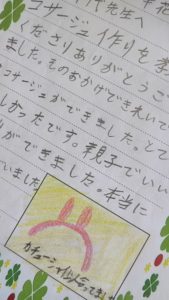 先生へ
コサージュ作りを
くださりありがとうご
ました。そのおかげできれいで
コサージュができました。とて
しかったです。親子でいい
ができました。本当に
いました
カチューシャ似合ってま